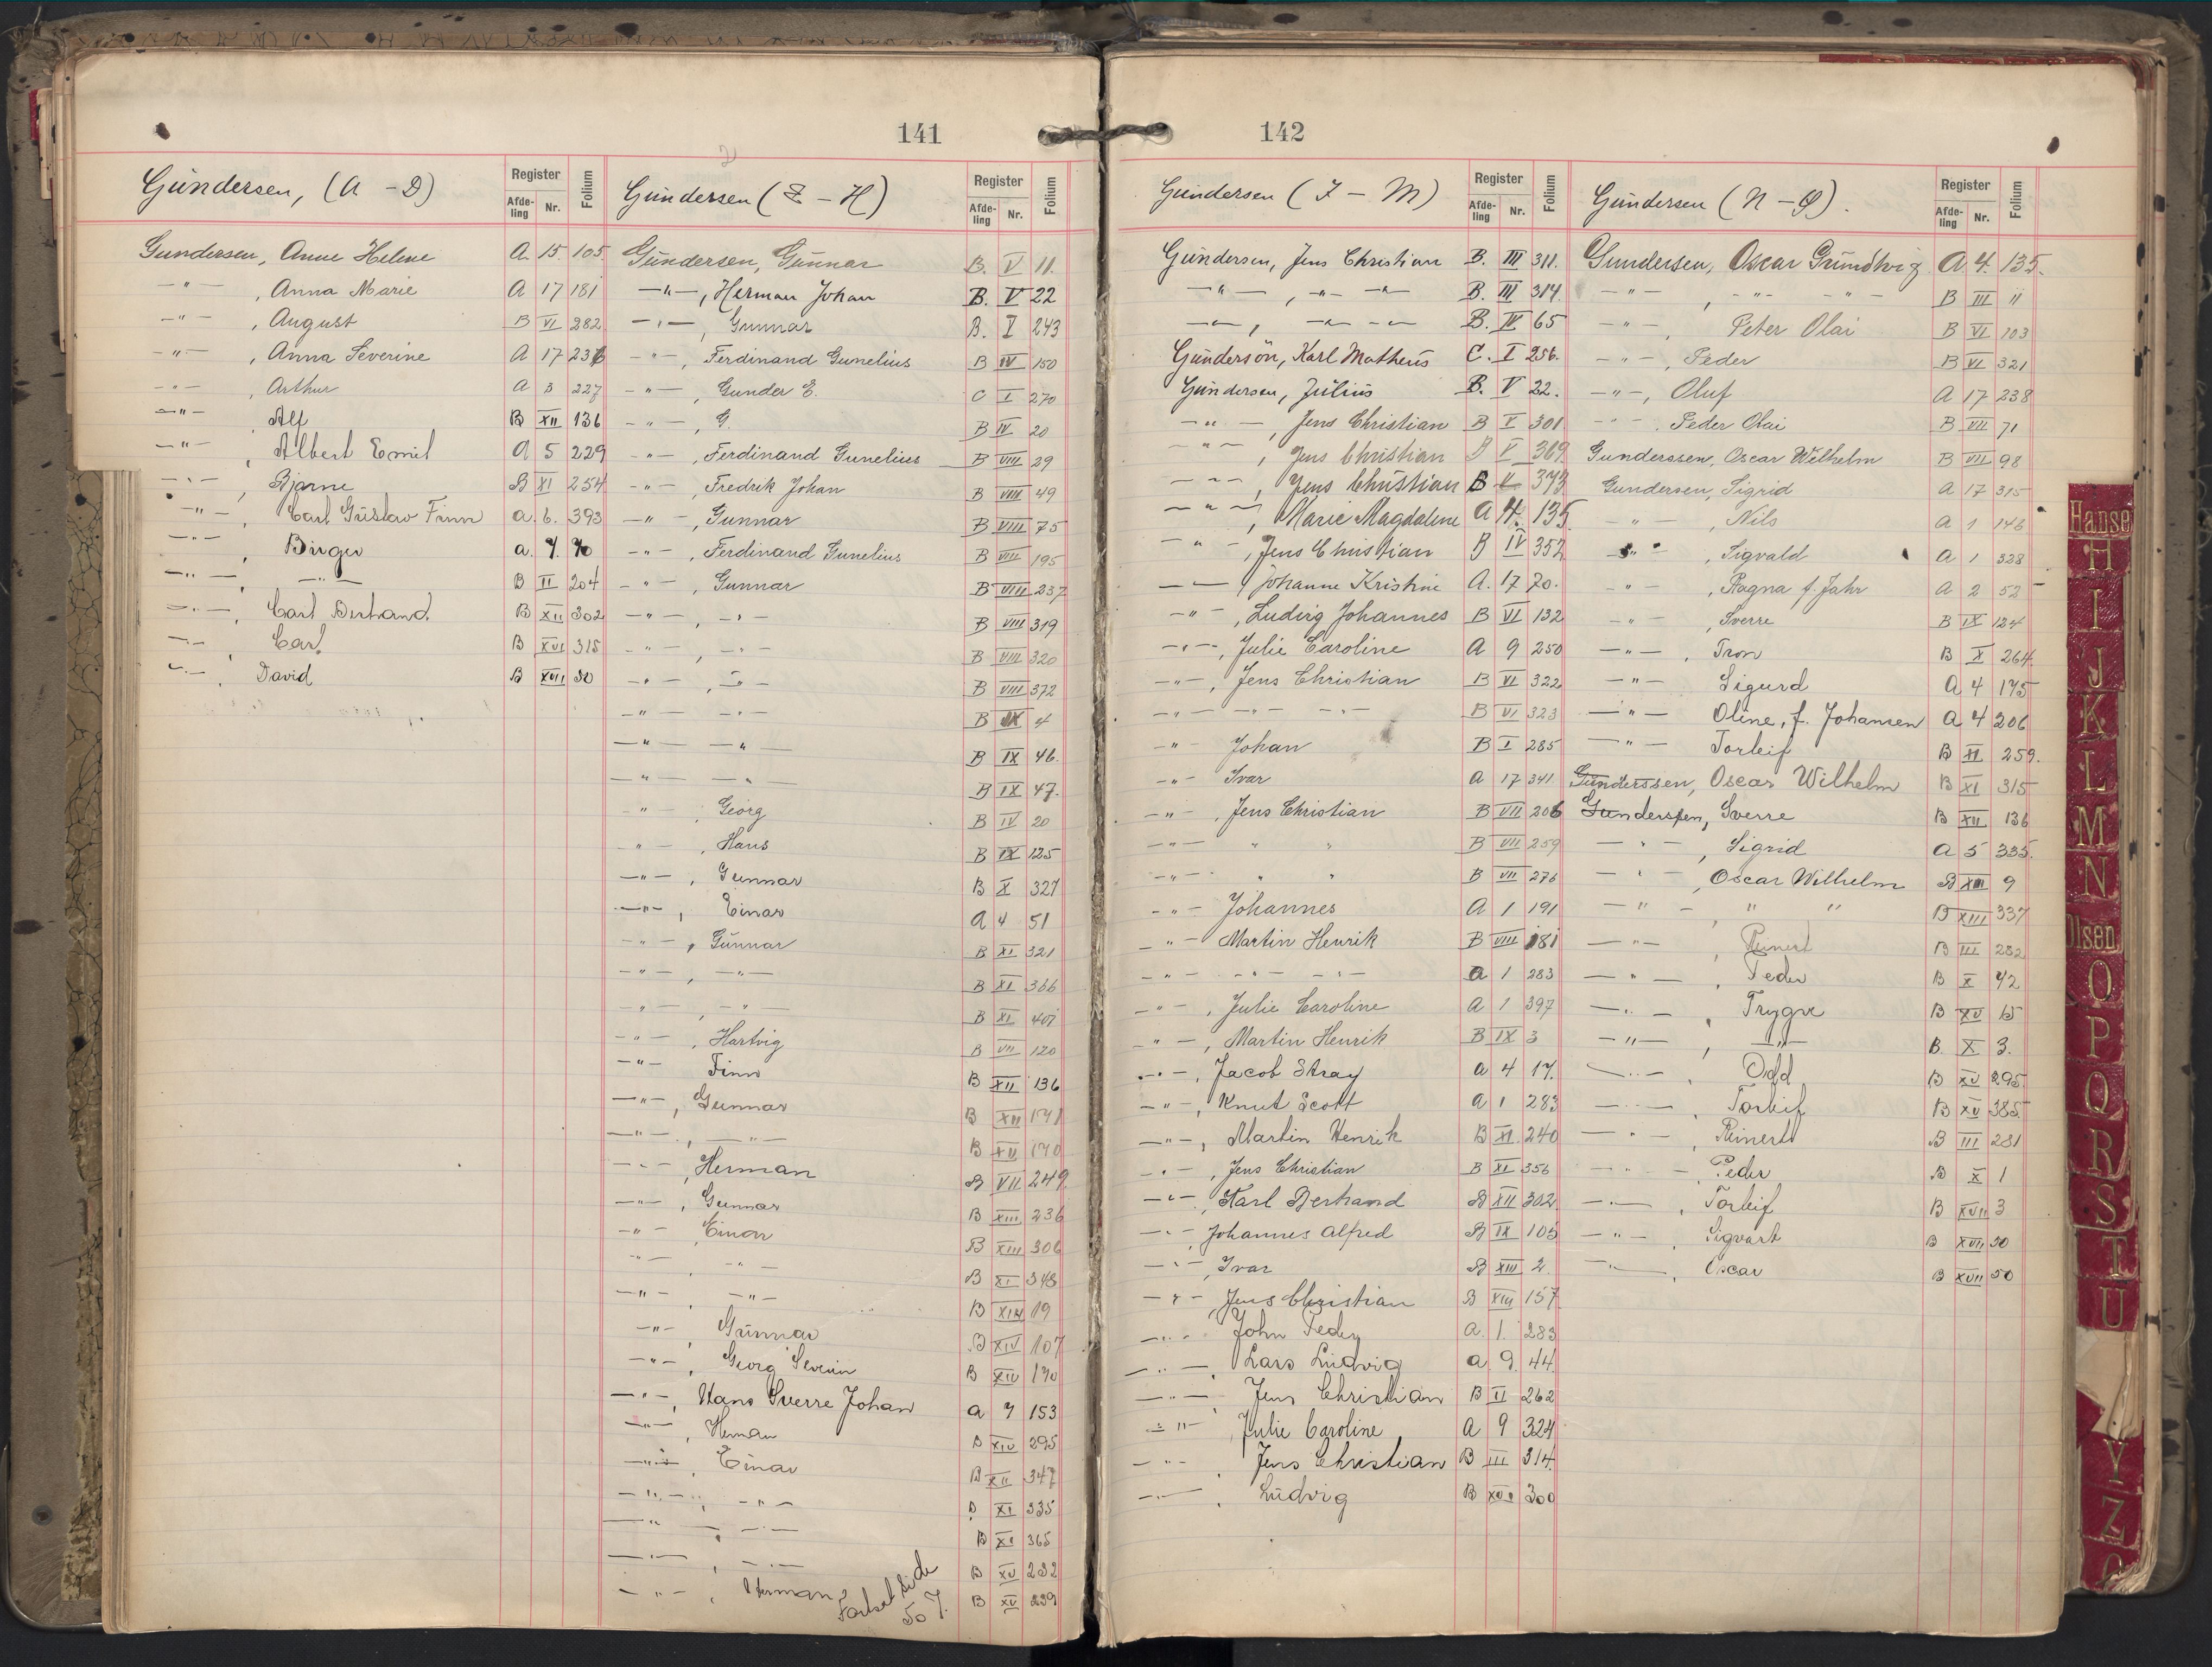 141
Gundersen, (A - D)
Register
Afde-ling Nr. Folium
Gundersen, Anne Helene A. 15. 105.
-"- , Anna Marie A 17 181
-"- , August B VI 282
-"- , Anna Severine A 17 236
-"- , Arthur A 3 227
-"- , Alf B XII 136
-"- , Albert Emil A 5 229
-"- , Bjarne B XI 254
-"- , Carl Gustav Finn a. 6. 393
-"- , Birger a. 7. 70
-"- , -"- B II 204
-"- , Carl Bertrand B XII 302
-"- , Carl B XVI 315
-"- , David B XVII 30
Gundersen (E - H)
Register
Afde-ling Nr. Folium
Gundersen, Gunnar B. V 11.
-"- , Herman Johan B. V 22
-"- , Gunnar B. I 243
-"- , Ferdinand Gunelius B IV 150
-"- , Gunder E. C I 270
-"- , G. B IV 20
-"- , Ferdinand Gunelius B VIII 29
-"- , Fredrik Johan B VIII 49
-"- , Gunnar B VIII 75
-"- , Ferdinand Gunelius B VIII 195
-"- , Gunnar B VIII 237
-"- , -"- B VIII 319
-"- , -"- B VIII 320
-"- , -"- B VIII 372
-"- -"- B IX 4
-"- -"- B IX 46.
-"- -"- B IX 47.
-"- , Georg B IV 20
-"- , Hans B IX 125
-"- , Gunnar B X 327
-"- , Einar A 4 51
-"- , Gunnar B XI 321
-"- , -"- B XI 366
-"- , -"- B XI 401
-"- , Hartvig B VII 120
-"- Finn B XII 136
-"- , Gunnar B XII 171
-"- , -"- B XII 170
-"- , Herman B VII 249
-"- , Gunnar B XIII 236
-"- , Einar B XIII 306
-"- , -"- B XI 348
-"- , -"- B XIV 19
-"- , Gunnar B XIV 107
-"- , Georg Severin B XIV 170
-"- , Hans Sverre Johan a 7 153
-"- , Herman B XIV 295
-"- , Einar B XII 347
-"- , -"- B XI 335
-"- , -"- B XI 365
-"- , -"- B XV 232
-"- , Herman B XV 239
Fortsat side 507.
142
Gundersen (I - M)
Register
Afde-ling Nr. Folium
Gundersen, Jens Christian B. III 311.
-"- , -"- -"- B. III 314
-"- , -"- -"- B. IV 65
Gundersön, Karl Matheus C. I 256.
Gundersen, Julius B. V 22.
-"- , Jens Christian B I 301
-"- , Jens Christian B V 369
-"- , Jens Christian B V 373
-"- , Marie Magdalene A 4. 135.
-"- , Jens Christian B IV 352
-"- , Johanne Kristine A. 17 70.
-"- , Ludvig Johannes B VI 132
-"- , Julie Caroline A 9 250
-"- , Jens Christian B VI 322
-"- -"- -"- B VI 323
-"- Johan B I 285
-"- Ivar A 17 341
-"- , Jens Christian B VII 206
-"- " " B VII 259
-"- " " B VII 276
-"- Johannes A 1 191
-"- Martin Henrik B VIII 181
-"- -"- -"- A 1 283
-"- , Julie Caroline A 1 397
-"- , Martin Henrik B IX 3
-"- , Jacob Stray a 4 17.
-"- , Knut Scott a 1 283
-"- , Martin Henrik B XI 240
-"- , Jens Christian B XI 356
-"- , Karl Bertrand B XII 302
-"- , Johannes Alfred B IX 105
-"- , Ivar B XIII 2
-"- , Jens Christian B XIII 157
-"- John Peder a. 1. 283
-"- , Lars Ludvig a 9. 44
-"- , Jens Christian B II 262
-"- , Julie Caroline A 9 324
-"- , Jens Christian B III 314
-"- , Ludvig B XVI 300
Gundersen (N - Ø).
Register
Afde-ling Nr. Folium
Gundersen, Oscar Grundtvig A 4. 135.
-"- , -"- -"- B III 11
-"- , Peter Olai B VI 103
-"- , Peder B VI 321
-"- , Oluf A 17 238
-"- , Peder Olai B VII 71
Gunderssen, Oscar Wilhelm B VII 98
Gundersen, Sigrid A 17 315
-"- , Nils A 1 146
-"- , Sigvald A 1 328
-"- , Ragna f. Jahr A 2 52
-"- , Sverre B IX 124
-"- , Tron B X 264.
-"- Sigurd A 4 175
-"- Oline, f. Johansen A 4 206
-"- Torleif B XI 259.
Gunderssen, Oscar Wilhelm B XI 315
Gundersen, Sverre B XII 136
-"- , Sigrid a 5 335.
-"- , Oscar Wilhelm B XIII 9
-"- , " " B XIII 337
-"- , Reinert B III 282
-"- , Peder B X 42
-"- , Trygve B XV 15
-"- , -"- B. X 3.
-"- , Odd B XV 295
-"- , Torleif B XV 385
-"- , Reinert B III 281
-"- , Peder B X 1
-"- , Torleif B XVII 3
-"- , Sigvart B XVII 30
-"- , Oscar B XVII 50
Hanse
H
I
J
K
L
M
N
Olsen
O
P
Q
R
S
T
U
Y
Z